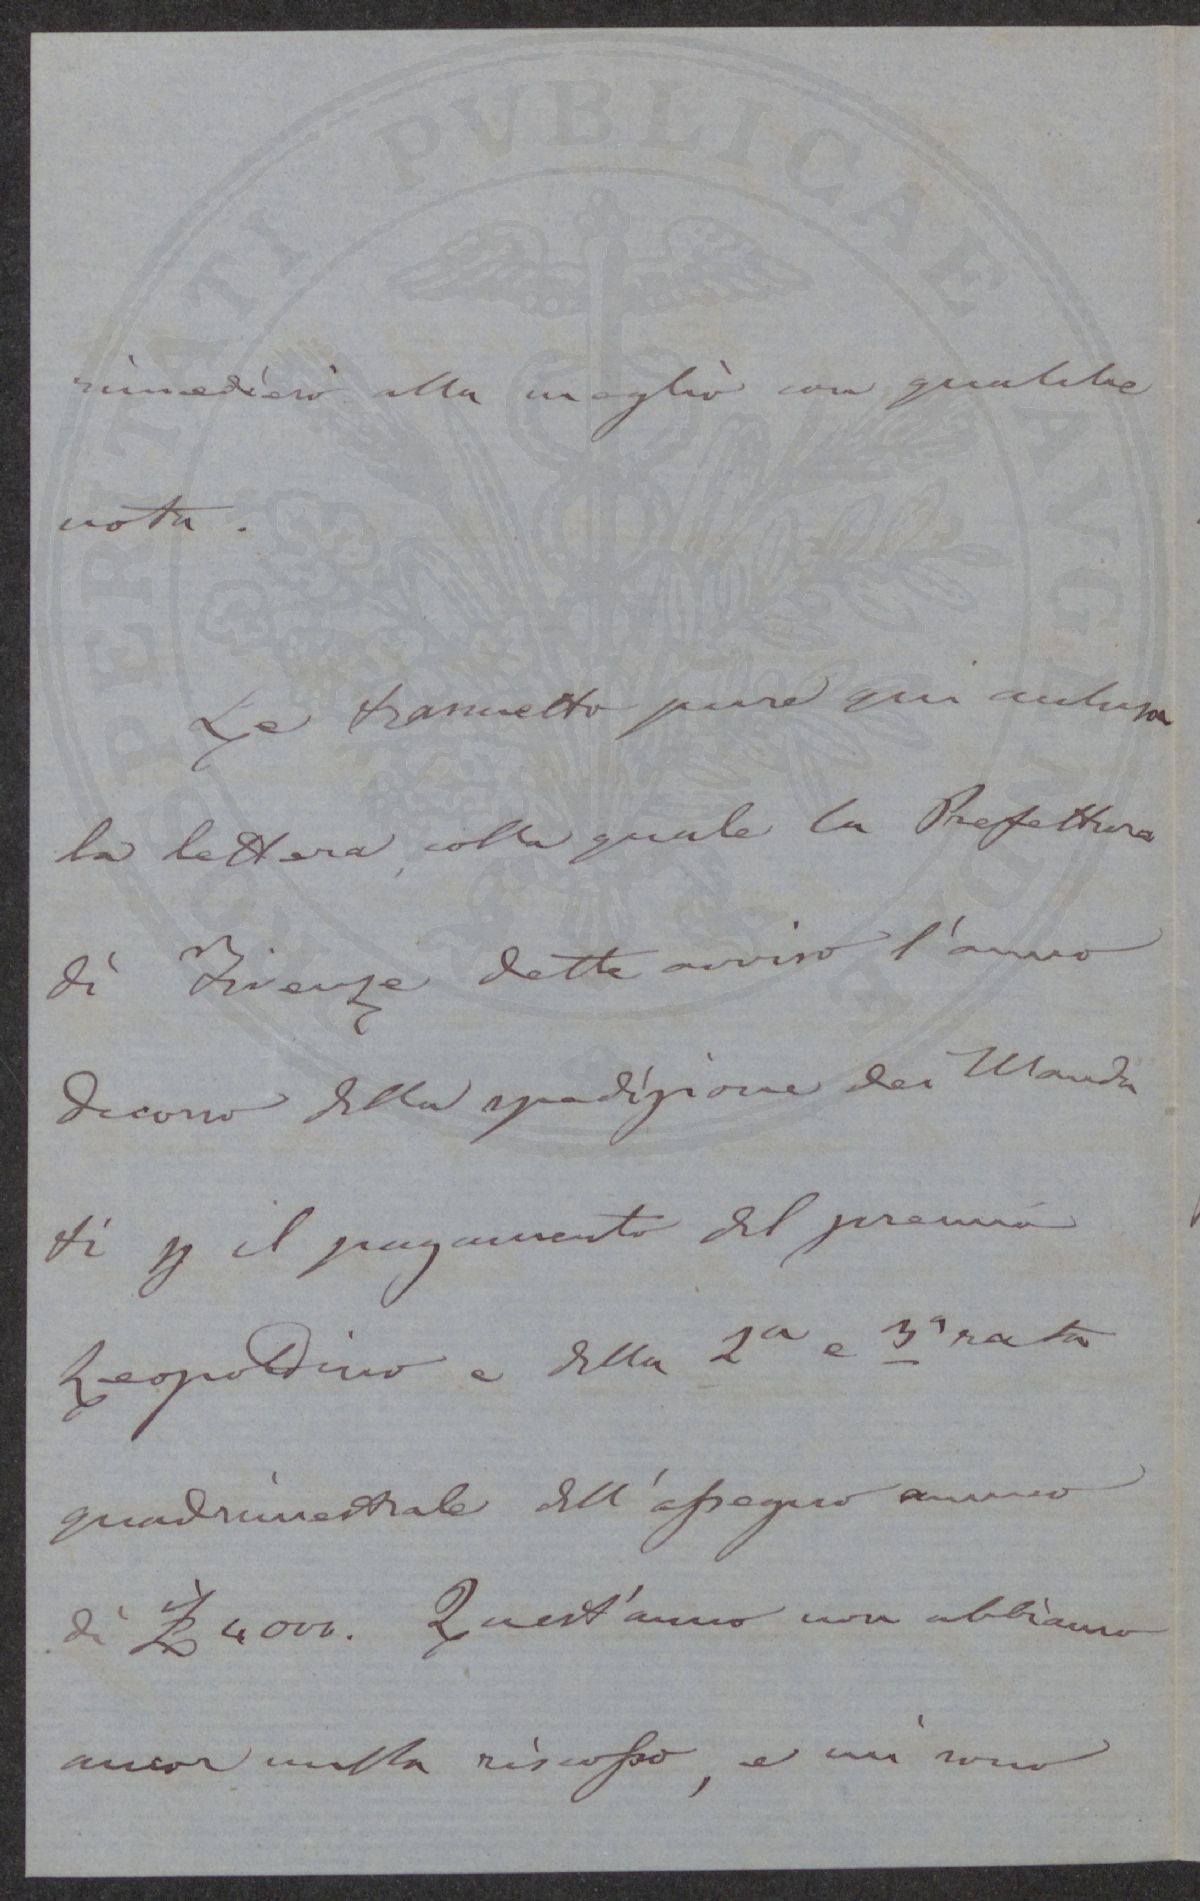 PROSPERITATI PVBLICAE AVGENDAE
rimedierò alla meglio con qualche
nota.
Le trasmetto pure qui
la lettera, colla quale la Prefettura
di Firenze dette avviso l'anno
decorso della spedizione dei Manda
ti p il pagamento del premio
Leopoldino e della 2a e 3a rata
quadrimestrale dell'assegno annuo
di £ 4000. Quest'anno non abbiamo
ancor nulla riscosso, e mi sono